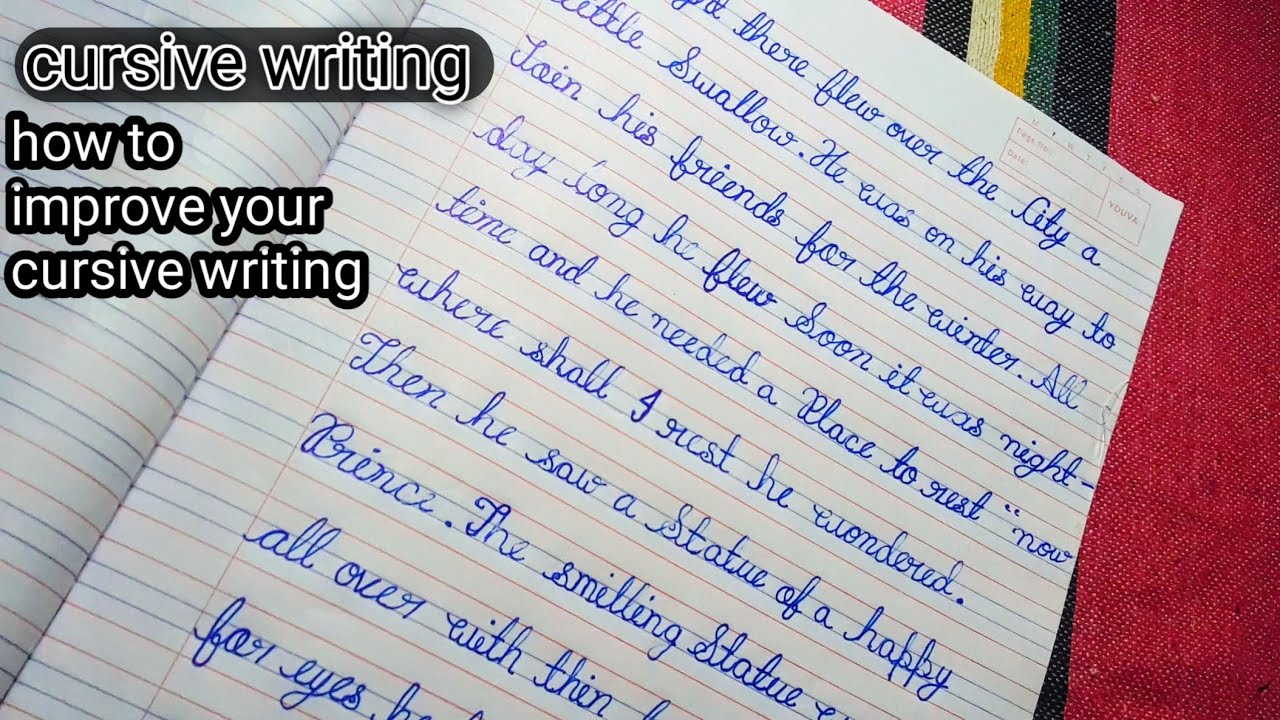 cursive writing
how to
improve your
cursive writing
M T W T F S S
Page No.:
Date:
YOUVA
there flew over the City a
little Swallow. He was on his way to
Join his friends for the winter. All
day long he flew Soon it was night-
time and he needed a Place to rest "now
where shall I rest he wondered.
Then he saw a Statue of a happy
Prince. The smilling Statue
all over with thin
for eyes